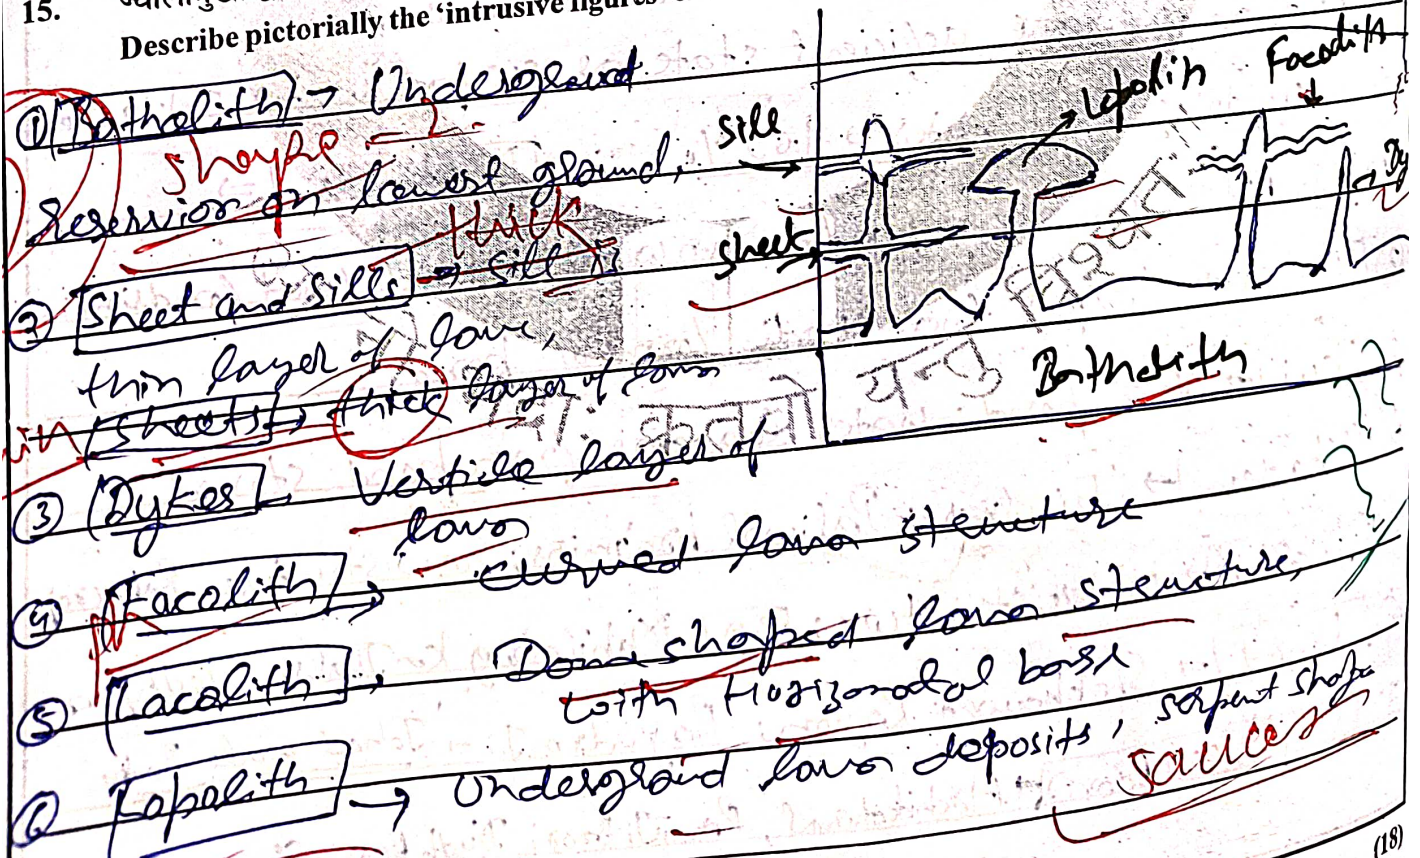 15.
Describe pictorially the 'intrusive
① Batholith → Undergrount
shape = ?
reservior on lowest ground,
thick
② Sheet and Sills → Sill is
thin layer of lava,
Sheets → thick layer of lava
③ Dykes → Verticle layer of
lava
④ Facolith → curved lava structure
⑤ Lacolith → Dome shaped lava structure,
with Horizonatal base
⑥ Lapolith → Undergroud lava deposits, serpent shape
saucer
sill
sheet
Lapolith
Facolith
Batholith
यन्तु
(18)